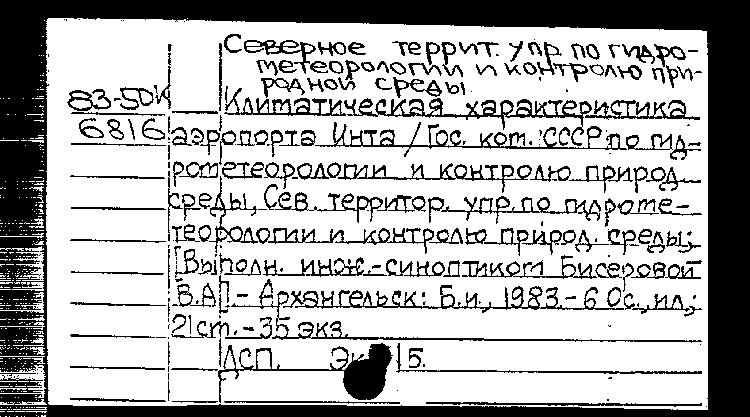 Северное террит. упр. по гидро-
метеорологии и контролю при-
родной среды.
83-50К Климатическая характеристика
6816 аэропорта Инта / Гос. ком. СССР по гид-
рометеорологии и контролю природ.
среды, Сев. территор. упр. по гидроме-
теорологии и контролю природ. среды;
[Выполн. инж.-синоптиком Бисеровой
В.А]. - Архангельск: Б.и., 1983. - 60с., ил.;
21 cm. - 35 экз.
ДСП. 15.